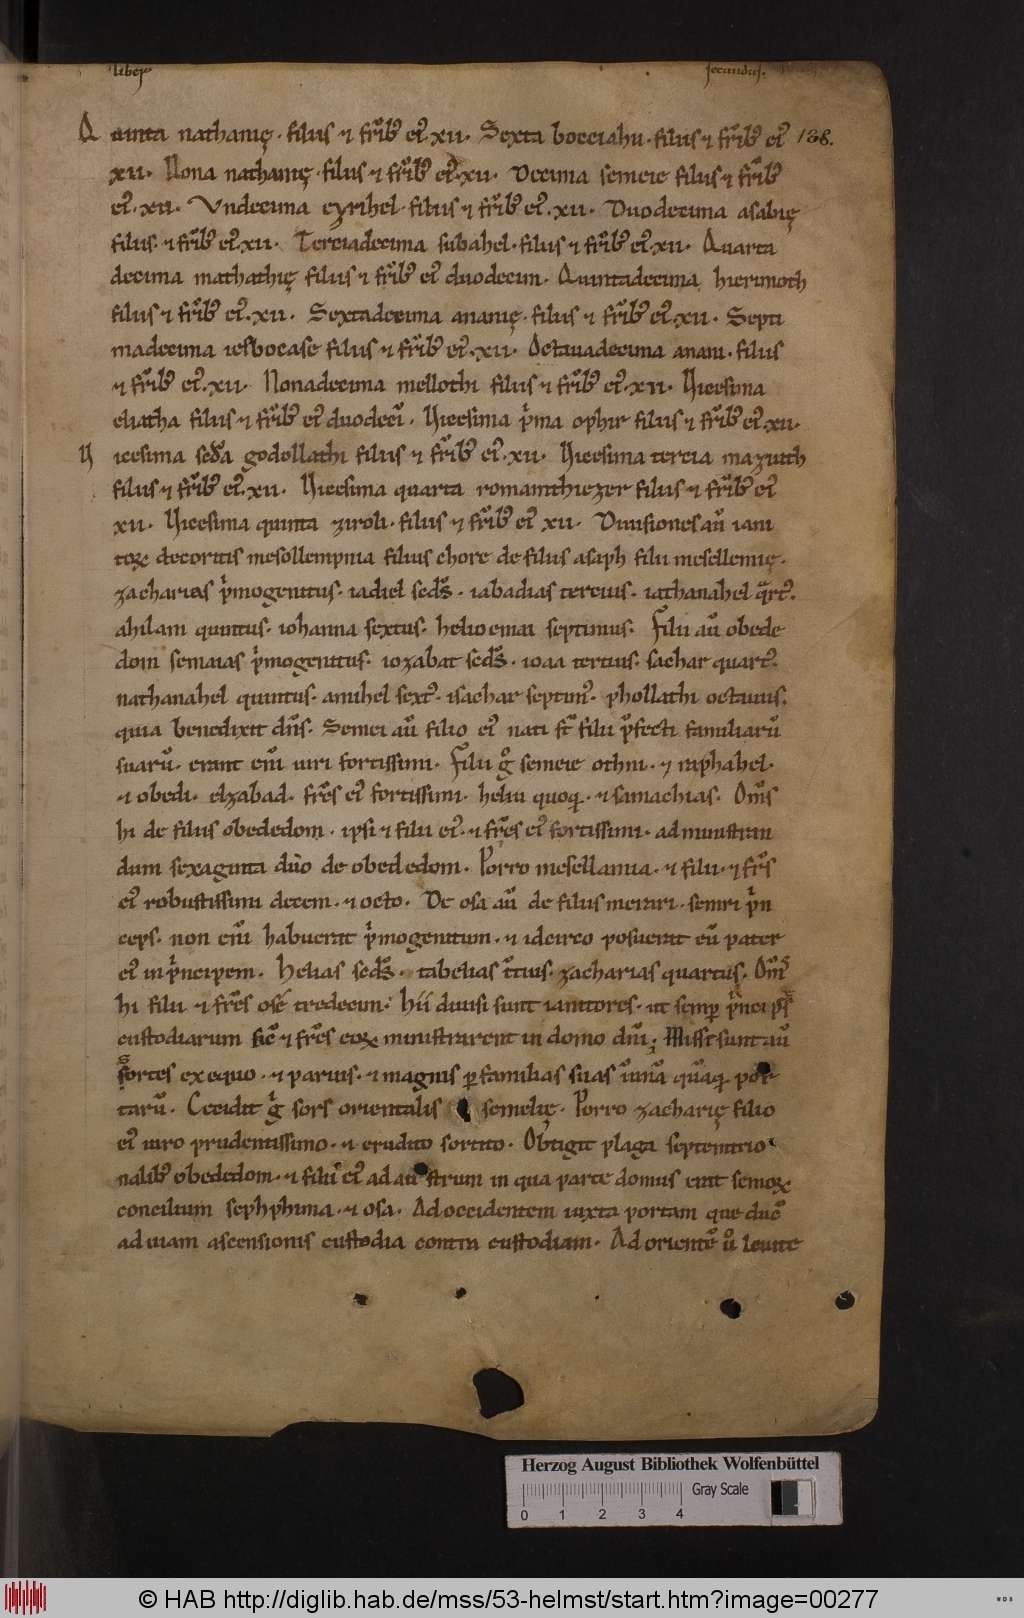 liber secundus.
Quinta nathanię. filius ⁊ fr̄ib' ei'. xii. Sexta bocciahu. filius ⁊ fr̄ib' ei' 138.
xii. Nona nathanię. filius ⁊ fr̄ib' ei'. xii. Decima semeie filius ⁊ fr̄ib'
ei'. xii. Undecima ezrihel. filius ⁊ fr̄ib' ei'. xii. Duodecima asabię
filius. ⁊ fr̄ib' ei'. xii. Terciadecima subahel. filius ⁊ fr̄ib' ei'. xii. Quarta
decima mathathię filius ⁊ fr̄ib' ei' duodecim. Quintadecima hierimoth
filius ⁊ fr̄ib' ei'. xii. Sextadecima ananię. filius ⁊ fr̄ib' ei'. xii. Septi
madecima iesbocase filius ⁊ fr̄ib' ei'. xii. Octauadecima anani. filius
⁊ fr̄ib' ei'. xii. Nonadecima mellothi filius ⁊ fr̄ib' ei'. xii. Uicesima
eliatha filius ⁊ fr̄ib' ei' duodeci̅. Uicesima p'ma ophir filius ⁊ fr̄ib' ei'. xii.
Uicesima sed̄a godollathi filius ⁊ fr̄ib' ei'. xii. Uicesima tercia mazuth
filius ⁊ fr̄ib' ei'. xii. Uicesima quarta romamthiezer filius ⁊ fr̄ib' ei'
xii. Uicesima quinta ziroli. filius ⁊ fr̄ib' ei' xii. Diuisiones au̅ iani
toꝝ decoritis mesollempnia filius chore de filiis asaph filii mesellemię.
zacharias p'mogenitus. iadiel sed̄s. iabadias tercius. iathanahel q̄rt'.
ahilam quintus. iohanna sextus. helioemai septimus. Filii au̅ obede
dom semaias p'mogenitus. iozabat sed̄s. ioaa tertius. sachar quart'.
nathanahel quintus. amihel sext'. isachar septim'. phollathi octauus.
quia benedixit dn̄s. Semei au̅ filio ei' nati s̄t filii p̄fecti familiaru̅
suaru̅. erant eni̅ uiri fortissimi. Filii g° semeie othni. ⁊ raphahel.
⁊ obedi. elzabad. fr̄es ei' fortissimi. heliu quoq;. ⁊ samachias. Om̄s
hi de filiis obededom. ipsi ⁊ filii ei'. ⁊ fr̄es ei' fortissimi. ad ministran
dum sexaginta duo de obededom. Porro mesellamia. ⁊ filii. ⁊ fr̄s
ei' robustissimi decem. ⁊ octo. De osa au̅ de filiis merari. semri p'n
ceps. non eni̅ habuerat p'mogenitum. ⁊ idcirco posuerat eu̅ pater
ei' in p'ncipem. Helias sed̄s. tabelias t̄tius. zacharias quartus. Om̄s
hi filii ⁊ fr̄es osę tredecim. Hii diuisi sunt ianitores. ut semp̱ p'ncip̄s
custodiarum sic̄ ⁊ fr̄es eoꝝ ministrarent in domo dn̄i. Misse sunt au̅
sortes ex equo. ⁊ paruis. ⁊ magnis ꝑ familias suas i̅una̅ qua̅q; por
taru̅. Cecidit g' sors orientalis semelię. Porro zacharię filio
ei' uiro prudentissimo. ⁊ erudito sortito. Obtigit plaga septemtrio
nalib' obededom. ⁊ filii' ei' ad austrum in qua parte domus erat senioꝝ
concilium sephphima. ⁊ osa. Ad occidentem iuxta portam que duc̄
ad uiam ascensionis custodia contra custodiam. Ad oriente̅ u° leuite
Herzog August Bibliothek Wolfenbüttel
Gray Scale
0 1 2 3 4
© HAB http://diglib.hab.de/mss/53-helmst/start.htm?image=00277